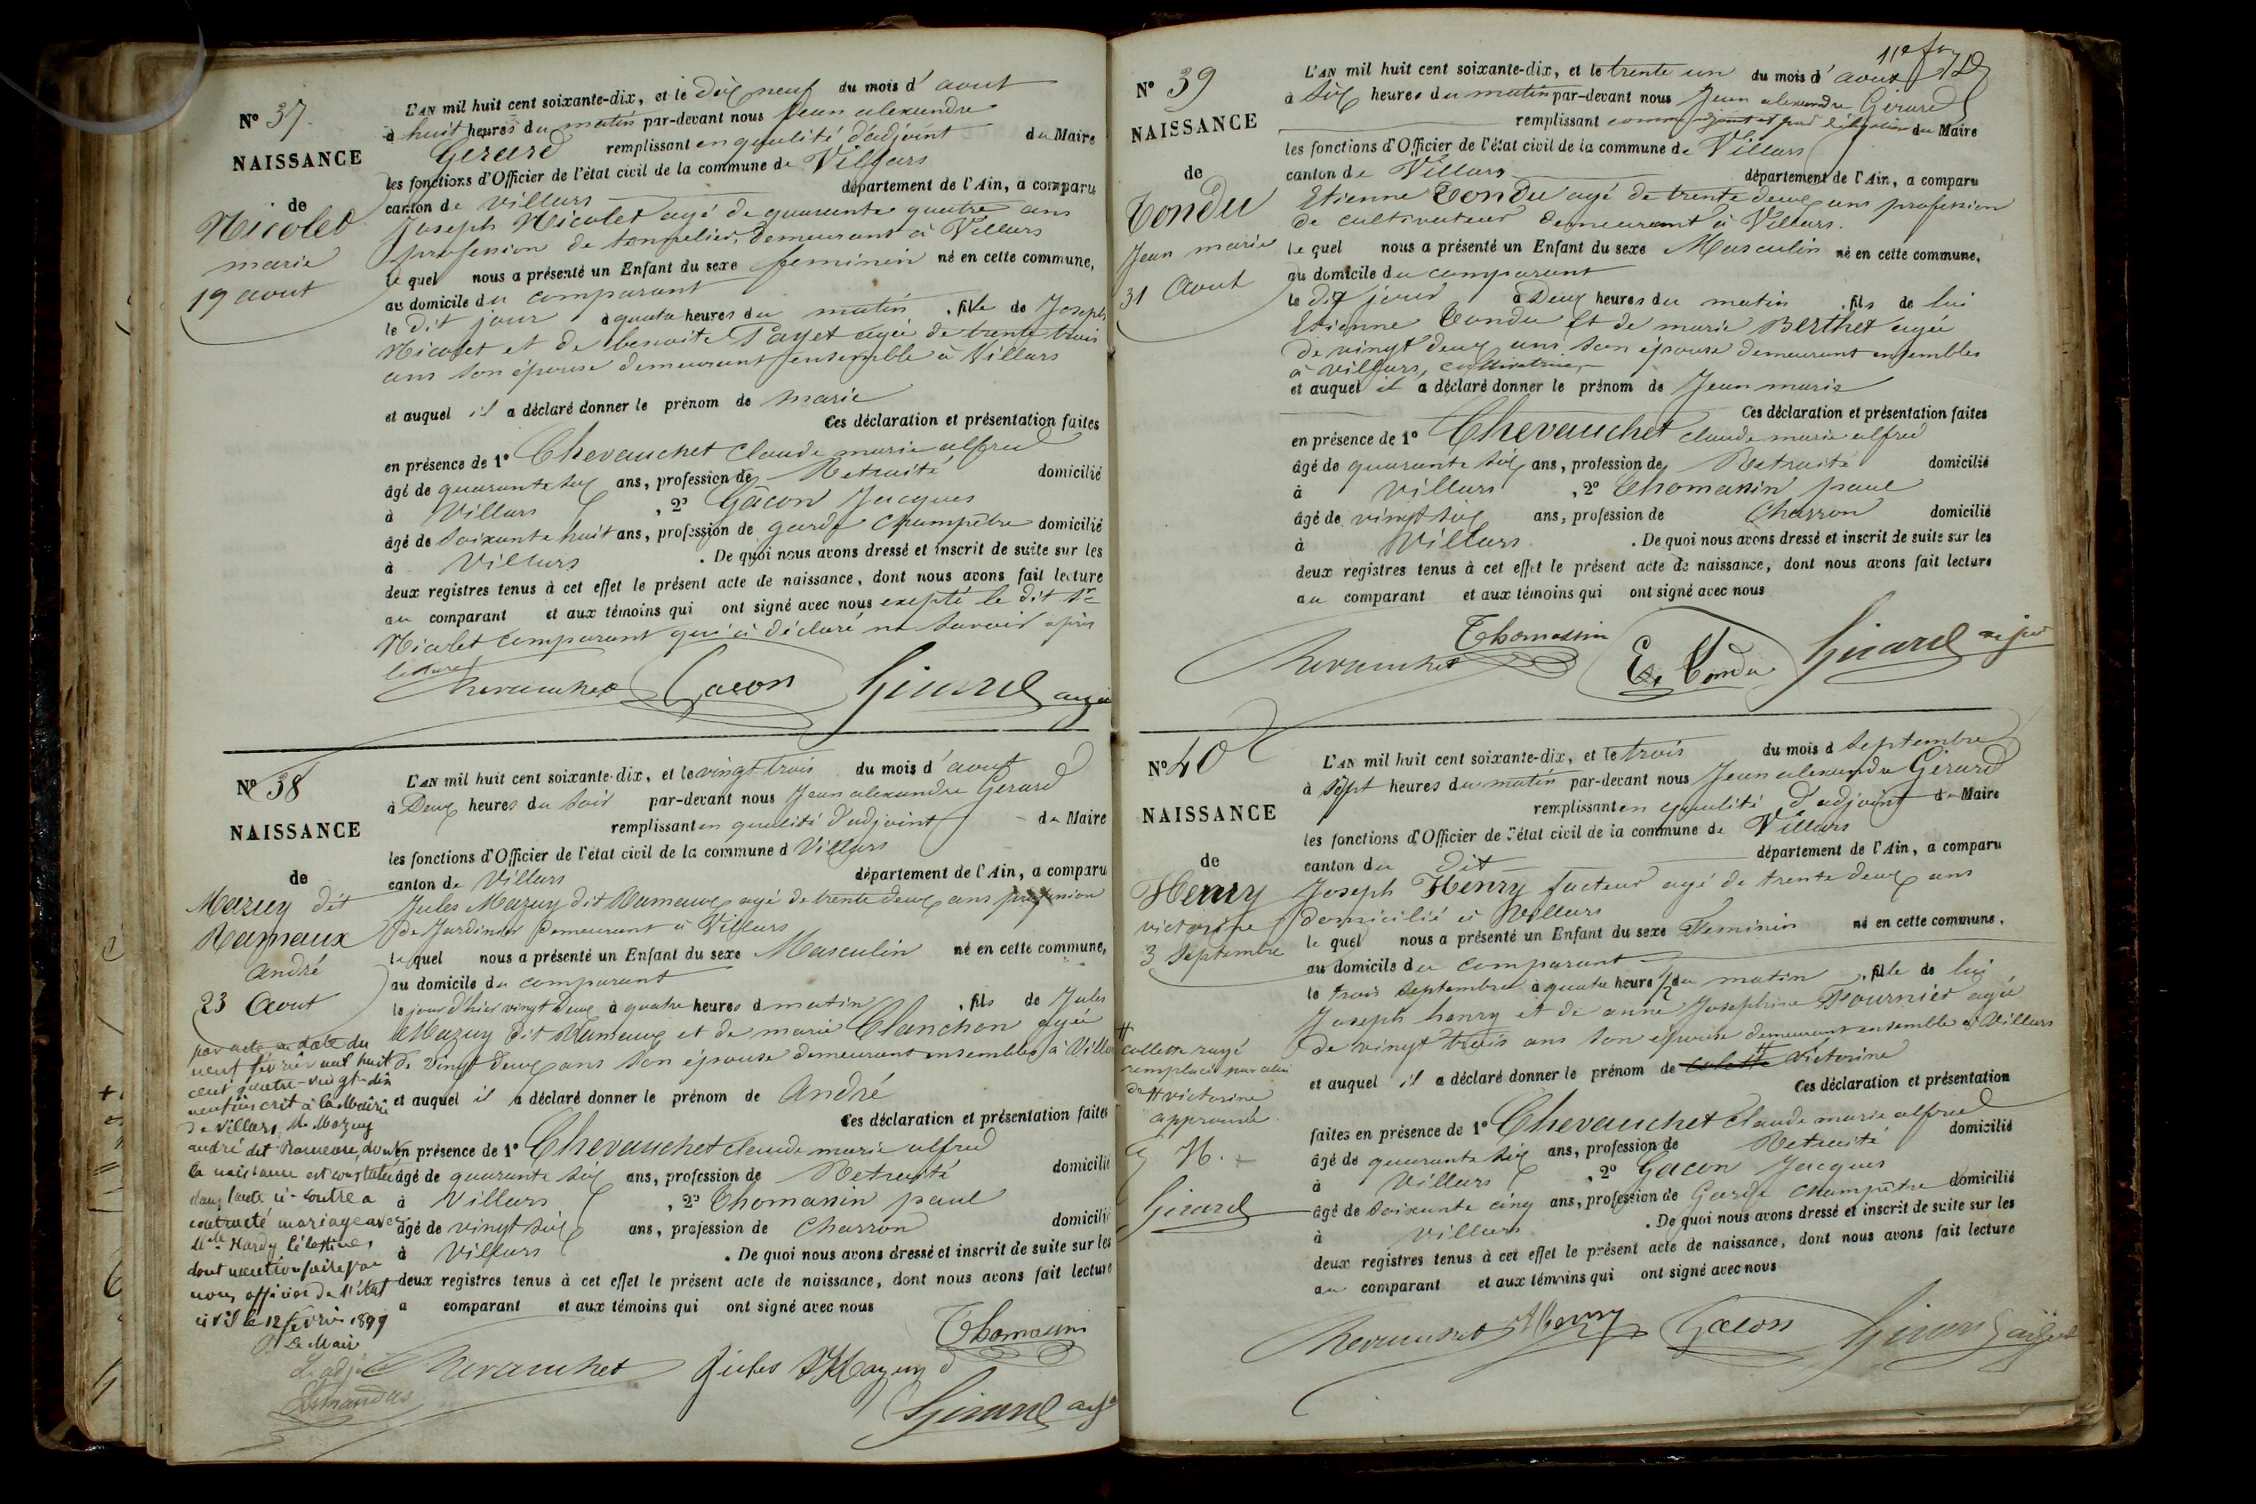 N° 37
NAISSANCE
de
Nicolet
marie
19 aout
L'AN mil huit cent soixante-dix, et le dix neuf du mois d'aout
à huit heures du matin par-devant nous Jean alexandre
Gerard remplissant en qualité d'adjoint du Maire
les fonctions d'Officier de l'état civil de la commune de Villars
canton de villars département de l'Ain, a comparu
Joseph Nicolet agé de quarante quatre ans
profession de tonnelier, demeurant à Villars
le quel nous a présenté un Enfant du sexe feminin né en cette commune,
au domicile du comparant
le dit jour à quatre heures du matin, fille de Joseph
Nicolet et de benoite Payet agée de trente trois
ans son épouse demeurant ensemble à Villars
et auquel il a déclaré donner le prénom de marie
Ces déclaration et présentation faites
en présence de 1° Chevauchet claude marie alfred
âgé de quarante six ans, profession de Retraité domicilié
à Villars, 2° Gâcon Jacques
âgé de soixante huit ans, profession de garde champêtre domicilié
à Villars. De quoi nous avons dressé et inscrit de suite sur les
deux registres tenus à cet effet le présent acte de naissance, dont nous avons fait lecture
au comparant et aux témoins qui ont signé avec nous exepté le dit Sr
Nicolet comparant qui a déclaré ne savoir après
lecture
Chevauchet Gacon Girard
N° 38
NAISSANCE
de
Mazuy dit
Rameaux
André
23 Aout
par acte en date du
neuf février mil huit
cent quatre-vingt-dix
neuf inscrit à la Mairie
de Villars, M. Mazuy
andré dit Rameaux, dont
la naissance est constatée
dans l'acte ci-contre a
contracté mariage avec
Melle Hardy Célestine,
dont mention faite par
nous officier de l'état
civil le 12 février 1899
P. Le Maire
L'adjoint
L'AN mil huit cent soixante-dix, et le vingt trois du mois d'aout
à Deux heures du soir par-devant nous Jean alexandre Gerard
remplissant en qualité d'adjoint du Maire
les fonctions d'Officier de l'état civil de la commune d Villars
canton de Villars département de l'Ain, a comparu
Jules Mazuy dit Rameaux agé de trente deux ans profession
de Jardinier demeurant à Villars
le quel nous a présenté un Enfant du sexe Masculin né en cette commune,
au domicile du comparant
le jour d'hier vingt deux à quatre heures d matin, fils de Jules
Mazuy dit Rameaux et de marie Clanchon agée
de vingt deux ans son épouse demeurant ensembles à Villars
et auquel il a déclaré donner le prénom de André
Ces déclaration et présentation faites
en présence de 1° Chevauchet claude marie alfred
âgé de quarante six ans, profession de Retraité domicilié
à Villars, 2° Thomassin paul
âgé de vingt six ans, profession de Charron domicilié
à Villars. De quoi nous avons dressé et inscrit de suite sur les
deux registres tenus à cet effet le présent acte de naissance, dont nous avons fait lecture
a comparant et aux témoins qui ont signé avec nous
Thomassin
Chevauchet Jules Mazuy
Girard adjt
N° 39
NAISSANCE
de
Tondu
Jean marie
31 Aout
L'AN mil huit cent soixante-dix, et le trente un du mois d'aout
à Six heures du matin par-devant nous Jean alexandre Gérard
remplissant comme adjoint et par délégation du Maire
les fonctions d'Officier de l'état civil de la commune de Villars
canton de Villars département de l'Ain, a comparu
Etienne Tondu agé de trente deux ans profession
de cultivateur demeurant à Villars.
le quel nous a présenté un Enfant du sexe Masculin né en cette commune,
au domicile du comparant
le dit jour à Deux heures du matin, fils de lui
Etienne Tondu et de marie Berthet agée
de vingt deux ans son épouse demeurant ensembles
à villars, cultivatrice
et auquel il a déclaré donner le prénom de Jean marie
Ces déclaration et présentation faites
en présence de 1° Chevauchet claude marie alfred
âgé de quarante six ans, profession de Retraité domicilié
à Villars, 2° Thomassin paul
âgé de vingt six ans, profession de Charron domicilié
à Villars. De quoi nous avons dressé et inscrit de suite sur les
deux registres tenus à cet effet le présent acte de naissance, dont nous avons fait lecture
au comparant et aux témoins qui ont signé avec nous
Thomassin
Chevauchet Et Tondu Girard adjt
N° 40
NAISSANCE
de
Henry
victorine
3 Septembre
# collette rayé
remplacé par celui
de # victorine
approuvé
J H.
Girard
L'AN mil huit cent soixante-dix, et le trois du mois d Septembre
à Sept heures du matin par-devant nous Jean alexandre Gérard
remplissant en qualité d'adjoint du Maire
les fonctions d'Officier de l'état civil de la commune de Villars
canton du Dit département de l'Ain, a comparu
Joseph Henry facteur agé de trente deux ans
domicilié à Villars
le quel nous a présenté un Enfant du sexe Feminin né en cette commune,
au domicile du comparant
le trois Septembre à quatre heure 1/2 du matin, fille de lui
Joseph henry et de anne Josephine Fournier agée
de vingt trois ans son épouse demeurant ensemble à Villars
et auquel il a déclaré donner le prénom de colette # Victorine
Ces déclaration et présentation
faites en présence de 1° Chevauchet Claude marie alfred
âgé de quarante six ans, profession de Retraité domicilié
à Villars, 2° Gacon Jacques
âgé de soixante cinq ans, profession de Garde champêtre domicilié
à Villars. De quoi nous avons dressé et inscrit de suite sur les
deux registres tenus à cet effet le présent acte de naissance, dont nous avons fait lecture
au comparant et aux témoins qui ont signé avec nous
Chevauchet JHenry Gacon Girard adjt